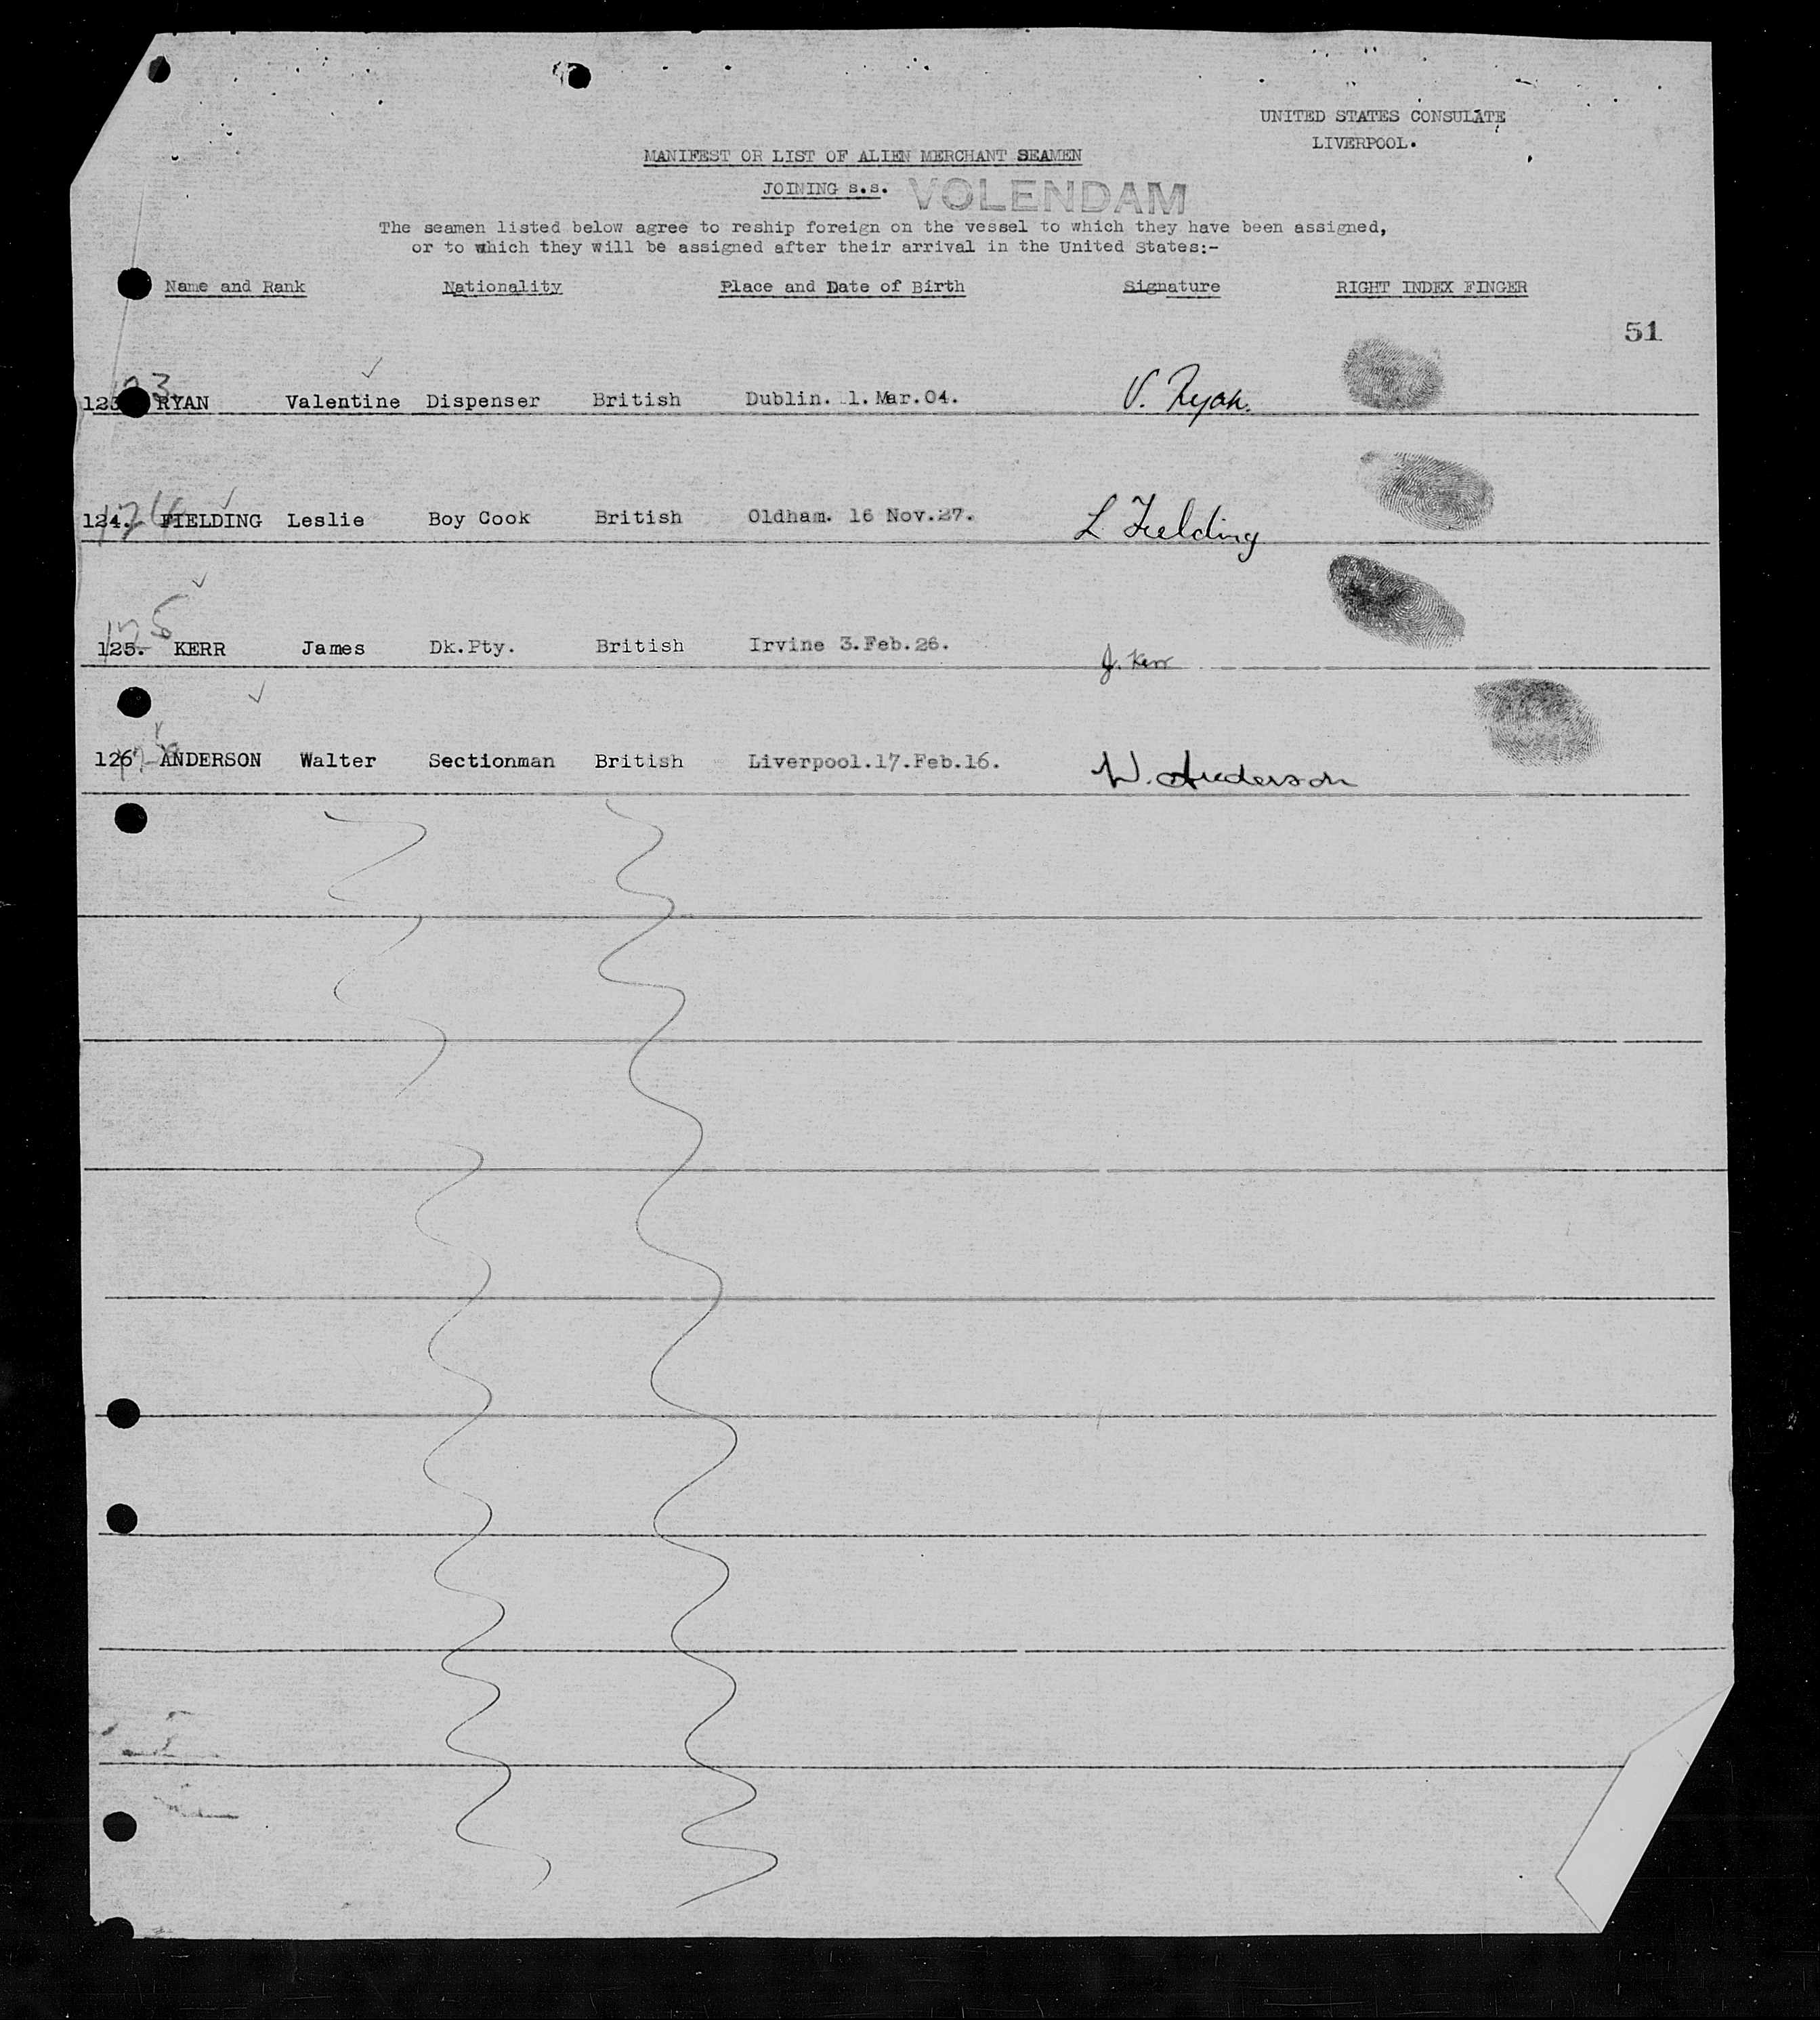 UNITED STATES CONSULATE
LIVERPOOL.
MANIFEST OR LIST OF ALIEN MERCHANT SEAMEN
JOINING s.s. VOLENDAM
The seamen listed below agree to reship foreign on the vessel to which they have been assigned,
or to which they will be assigned after their arrival in the United States:-
Name and Rank Nationality Place and Date of Birth Signature RIGHT INDEX FINGER
51
123 RYAN Valentine Dispenser British Dublin. 1. Mar.04. V. Ryan.
124. FIELDING Leslie Boy Cook British Oldham. 16 Nov.27. L Fielding
125. KERR James Dk.Pty. British Irvine 3.Feb.26. J. Kerr
126 ANDERSON Walter Sectionman British Liverpool.17.Feb.16. W. Anderson